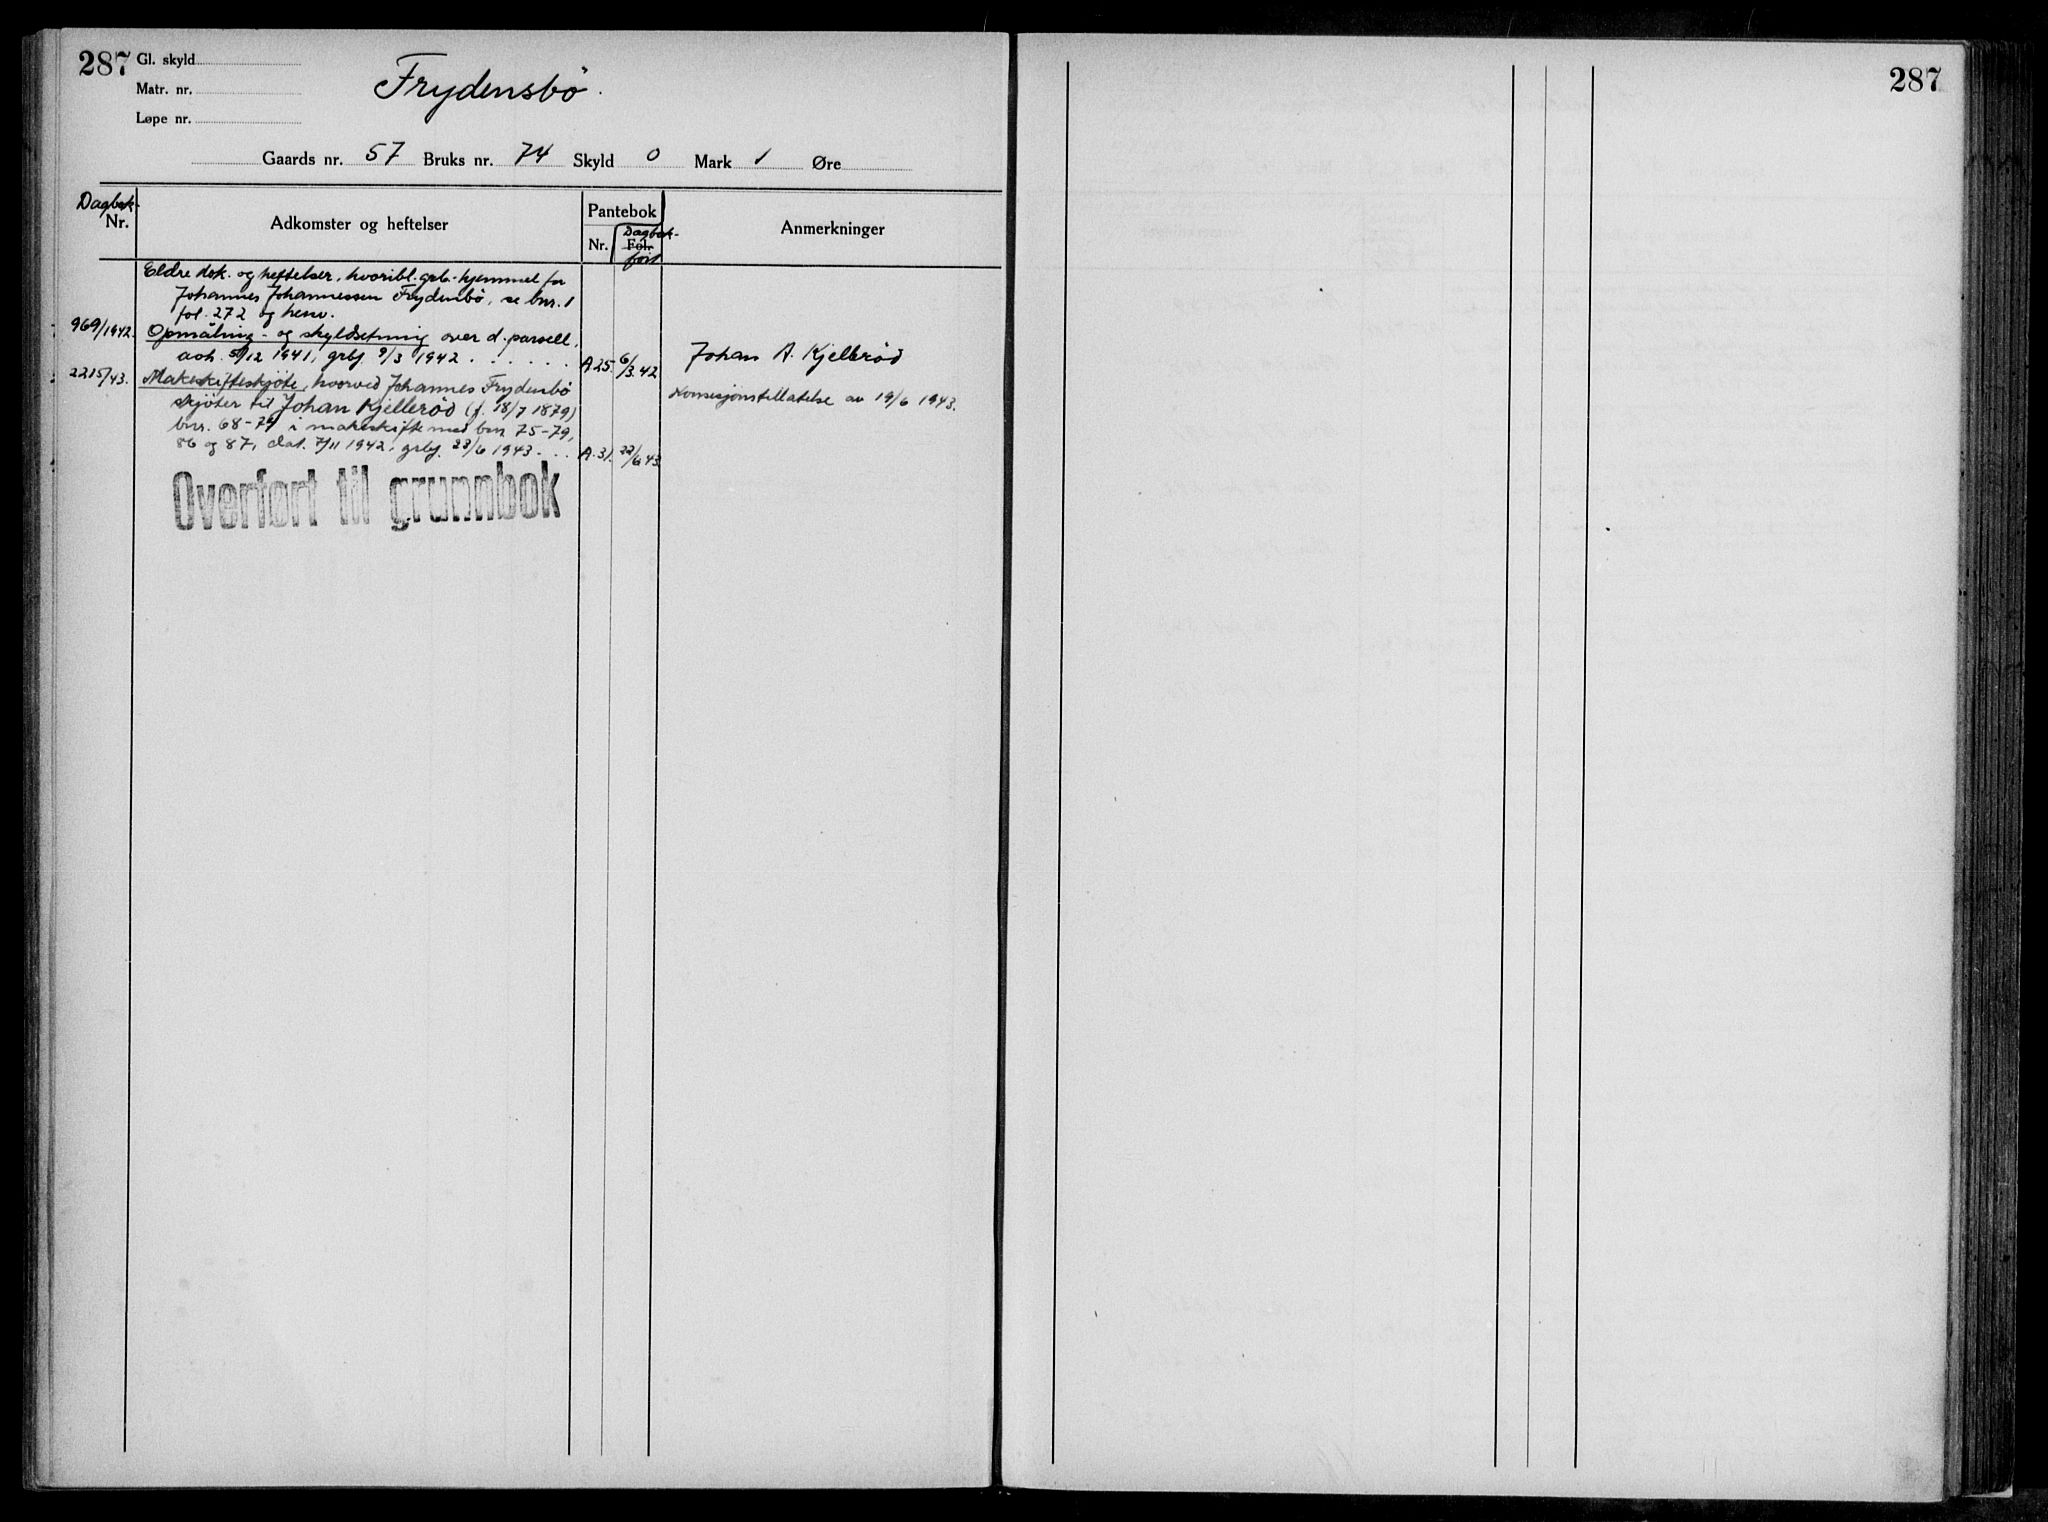 287
Gl. skyld
Matr. nr.
Løpe nr.
Frydensbö.
Gaards nr. 57 Bruks nr. 74 Skyld 0 Mark 1 Øre
Dagbok-
Nr.
Adkomster og heftelser
Pantebok
Nr.
Dagbok-
Fol.
ført
Anmerkninger
Eldre dok. og heftelser, hvoribl. grb. hjemmel for
Johannes Johannessen Frydenbö, se bnr. 1
fol. 272 og henv.
969/1942. Opmåling- og skyldsetning over d. parsell,
avh. 5/12 1941, grbj 9/3 1942 . . . . . A 25. 6/3.42 Johan A. Kjellerød
2215/43. Makeskifteskjöte, hvorved Johannes Frydenbö
skjöter til Johan Kjelleröd (f. 18/7 1879)
Konsesjonstillatelse av 19/6 1943.
bnr. 68-74 i makeskifte med bnr 75-79,
86 og 87, dat. 7/11 1942, grbj. 23/6 1943 . . . A. 31. 22/6 43.
Overført til grunnbok
287